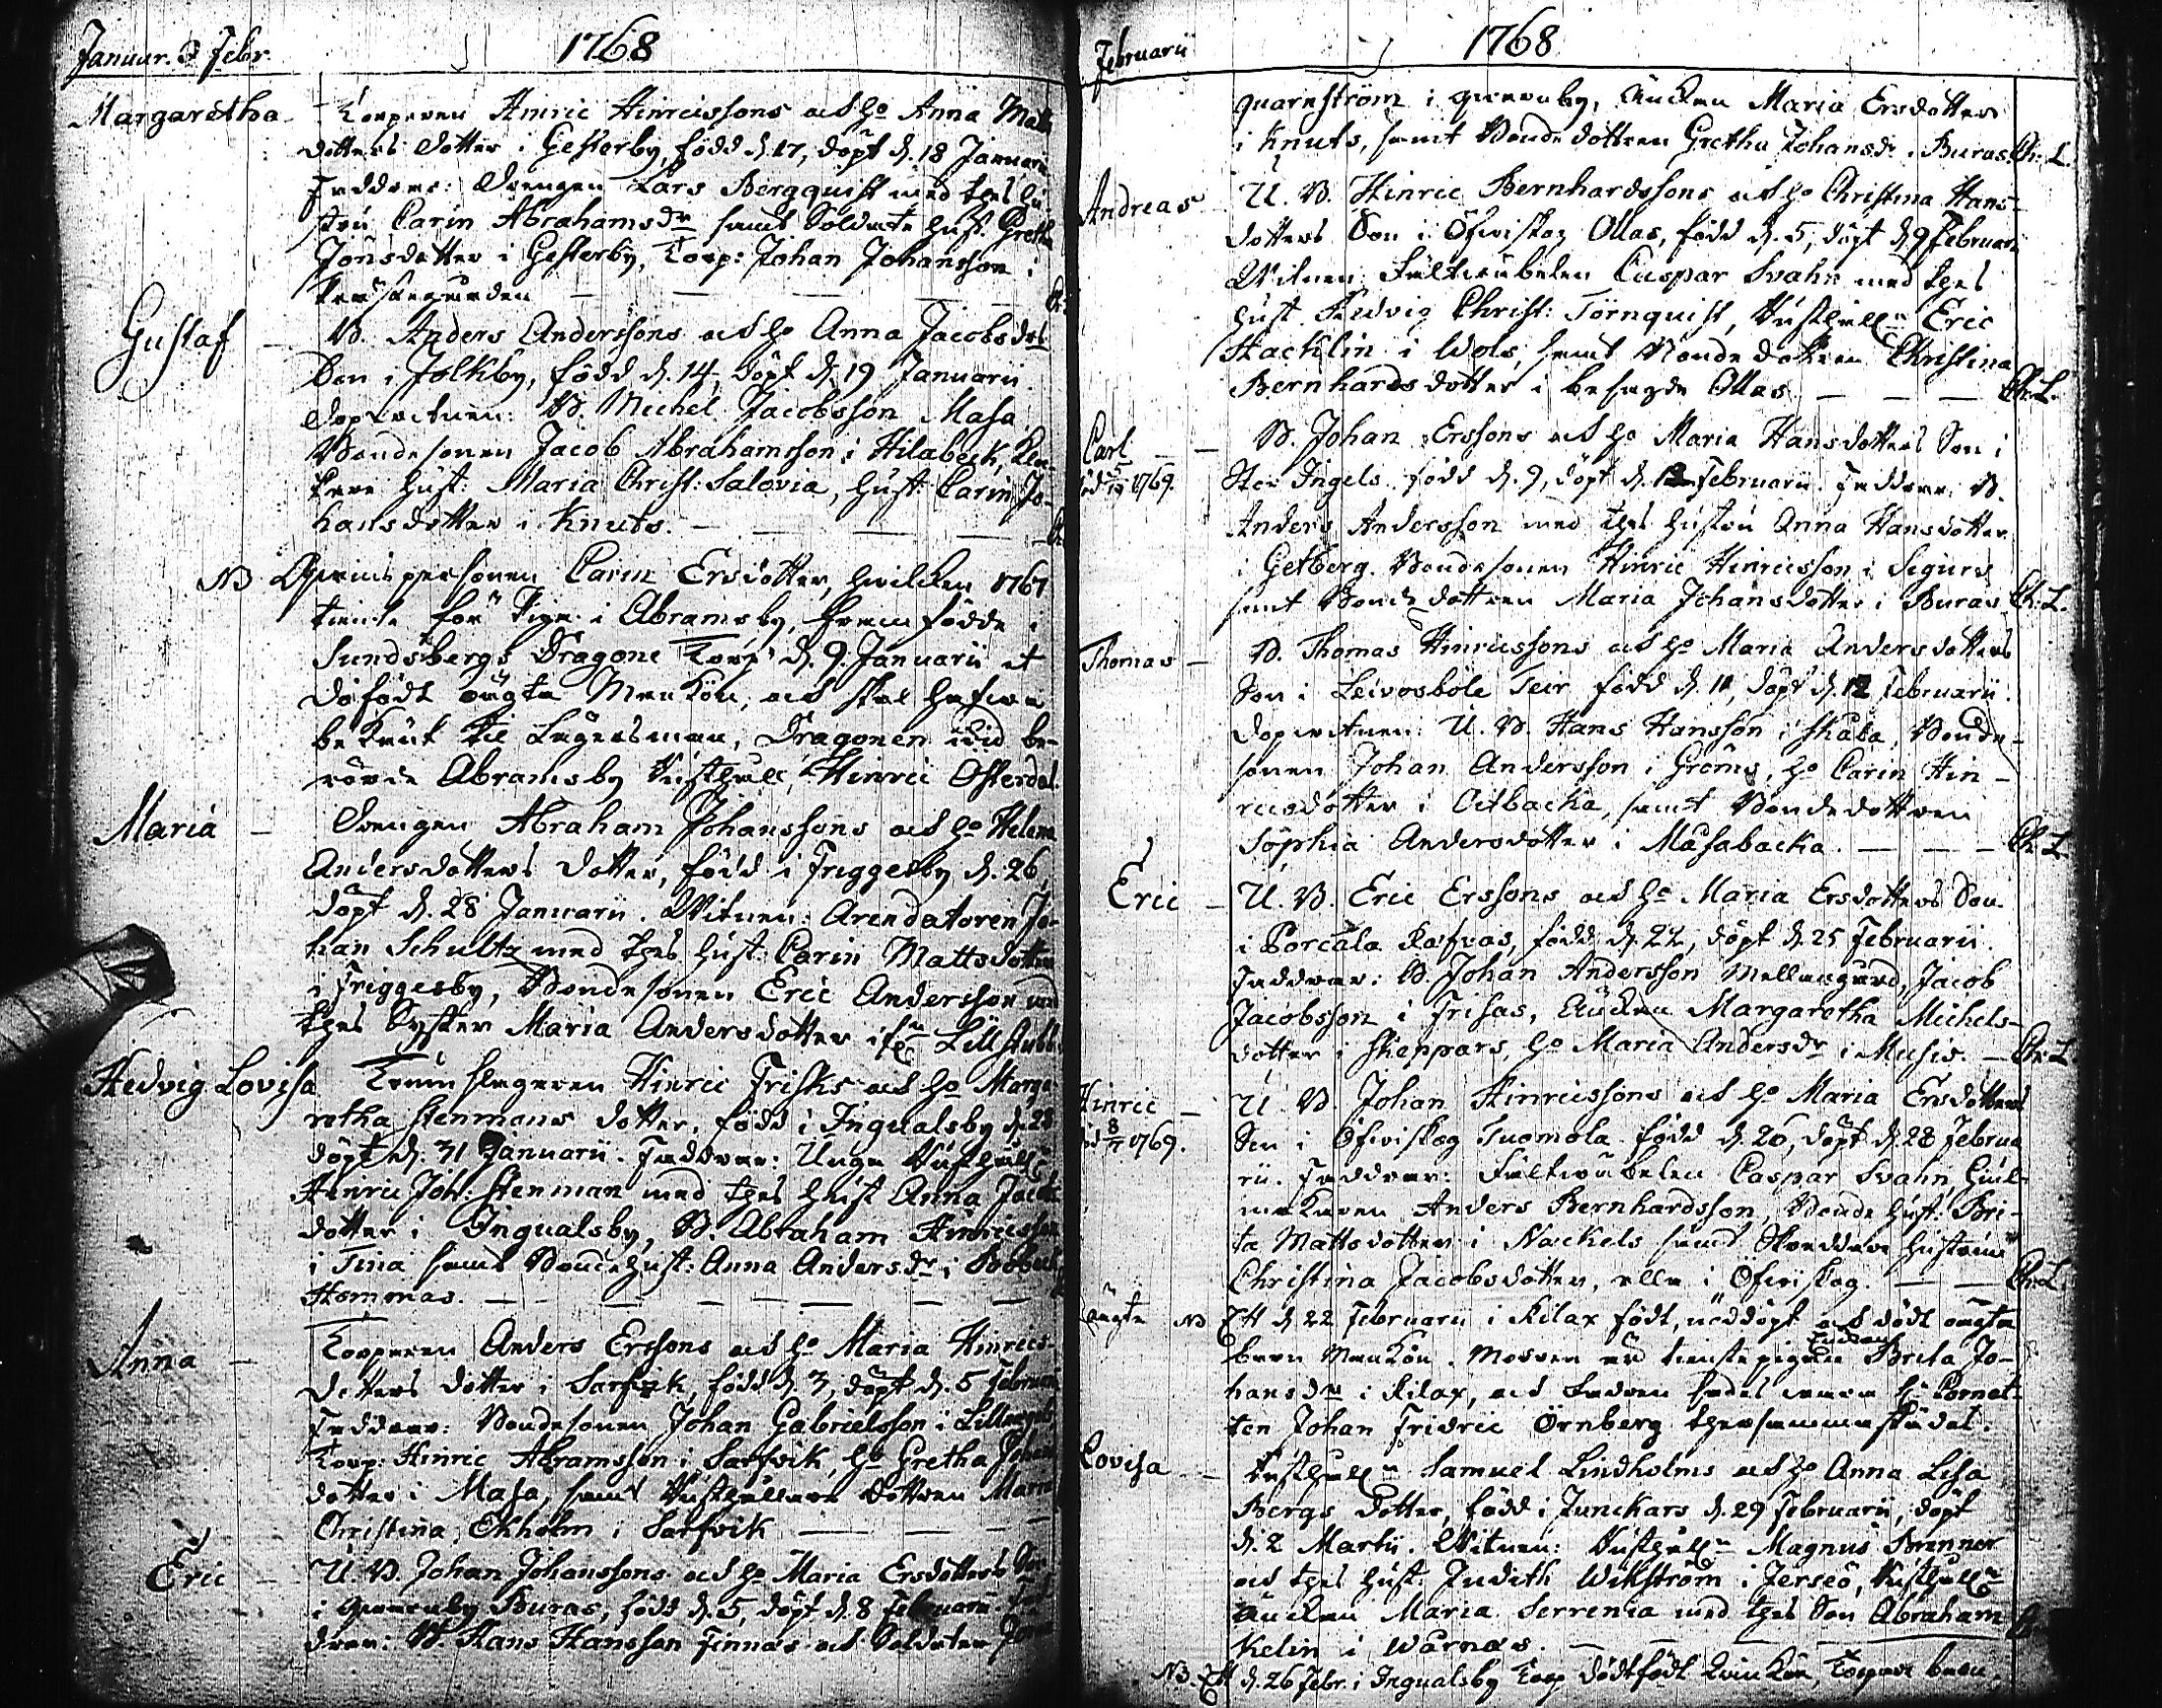 Januar. & Febr.
1768
Margaretha
Torparen Hinric Hinricssons och ho Anna Matts
dotters dotter i Gesterby, född d. 17, döpt d. 18 Januarii
Faddrar: Drengen Lars Bergquist med thes hu
stru Carin Abrahamsdr samt Soldate hust. Gretha
Jönsdotter i Gesterby, Torp: Johan Johansson i
Gustaf
B. Anders Anderssons och ho Anna Jacobsdrs
Son i Jolkby, född d. 14, döpt d. 19 Januarii.
Dopvitnen: B. Michel Jacobsson Masa
Bondesonen Jacob Abrahamsson i Hilabeck, Klo-
kare hust. Maria Christ: Salovia, hust: Carin Jo-
hansdotter i Knuts.
NB Qvinspersonen Carin Ersdotter, hvilken 1767
tiente för piga i Abramsby, framfödde i
Sundsbergs Dragone Torp d. 9. Januarii et
dödfödt oägta Mankön, och skal hafva
bekänt til Lägersman, Dragonen vid be-
rörde Abramsby Rusthåll, Hinric Osterdal.
Maria
Drengen Abraham Johanssons och ho Helena
Andersdotters dotter, född i Friggesby d. 26
döpt d. 28 Januarii. Vitnen: Arendatoren Jo-
han Schultz med thes hust: Carin Mattsdotter
i Friggesby, Bondesonen Eric Andersson med
thes Syster Maria Andersdotter ifrn Lillstubb
Hedvig Lovisa
Trumslagaren Hinric Frisks och ho Marga-
retha Stenmans dotter, född i Ingvalsby d. 28
döpt d. 31 Januarii. Faddrar: Unge Rusthålln
Hinric Joh: Stenman med thes hust Anna Jacobs
dotter i Ingvalsby, B. Abraham Hinricsson
i Tina samt Bondehust: Anna Andersdr i Bobeck
Hommas.
Anna
Torparen Anders Erssons och ho Maria Hinrics-
dotters dotter i Sarfvik, född d. 3, döpt d. 5 Februarii
Faddrar: Bondesonen Johan Gabrielsson i Lillengels
Torp: Hinric Abramsson i Sarfvik, ho Gretha Johans
dotter i Masa, samt Rusthållare dottren Maria
Christina Ekholm i Sarfvik
Eric
U. B. Johan Johanssons och ho Maria Ersdotters Son
i Qvarnby Buras, född d. 5, döpt d. 8 Februarii. Fad
drar: B. Hans Hansson Finnas och Soldaten Jonas
Februarii
1768
Quarnström i Qvarnby, Änckan Maria Ersdotter
i Knuts, samt Bondedottren Gretha Johansdr i Buras Ch: L.
Andreas
U. B. Hinric Bernhardssons och ho Christina Hans-
dotters Son i Öfverskog Ollas, född d. 5, döpt d. 9 Februarii
Vitnen: Fältväbelen Caspar Svahn med thes
hust. Hedvig Christ: Törnquist, Rusthålln Eric
Stacklin i Wols, samt Bondedottren Christina
Bernhardsdotter i besagde Ollas Ch: L.
Carl
B. Johan Erssons och ho Maria Hansdotters Son i
död 5/19 1769.
Stor Ingels född d. 9, döpt d. 12 Februarii. Faddrar: B.
Anders Andersson med thes hustru Anna Hansdotter
i Getberg. Bondesonen Hinric Hinricsson i Sigurs
samt Bondedottren Maria Johansdotter i Buras Ch: L.
Thomas
B. Thomas Hinricssons och ho Maria Andersdotters
Son i Leivosböle Teir född d. 11, döpt d. 12 Februarii.
Dopvitnen: U. B. Hans Hansson i Skata, Bonde-
sonen Johan Andersson i Gröms, ho Carin Hin-
ricsdotter i Oitbacka, samt Bondedottren
Sophia Andersdotter i Masabacka. Ch: L.
Eric
U. B. Eric Erssons och ho Maria Ersdotters Son
i Porcala Rafvas, född d. 22, döpt d. 25 Februarii.
Faddrar: B. Johan Andersson Mellangård, Jacob
Jacobsson i Frisas, Änckan Margaretha Michels-
dotter i Skeppars, ho Maria Andersdr i Musis. Ch: L.
Hinric
U. B. Johan Hinricssons och ho Maria Ersdotters
död 8/7 1769.
Son i Öfverskog Tuomola född d. 26, döpt d. 28 Februa
rii. Faddrar: Fältväbelen Caspar Svahn,
makaren Anders Bernhardsson, Bonde hust: Bri-
ta Mattsdotter i Nackels samt Skreddare hustrun
Christina Jacobsdotter, alla i Öfverskog. Ch: L.
oägta NB Ett d. 22 Februarii i Kilax födt, nöddöpt och dödt oägta
barn Mankön. Modren är tienstepigan Brita Jo-
hansdr i Kilax, och Fadren sades vara hr Cornet-
ten Johan Fridric Örnberg thersammastädes.
Lovisa
Rusthålln Samuel Lindholms och ho Anna Lisa
Bergs dotter, född i Junckars d. 29 Februarii, döpt
d. 2 Martii. Vitnen: Rusthålln Magnus Brenner
och thes hust: Judith Wikström i Jerseö, Rusthålln
Änckan Maria Serrenia med thes Son Abraham
Kelin i Wärnäs.
NB. Ett d. 26 Febr. i Ingvalsby Torp dödfödt kvinkön, Torpare barn.